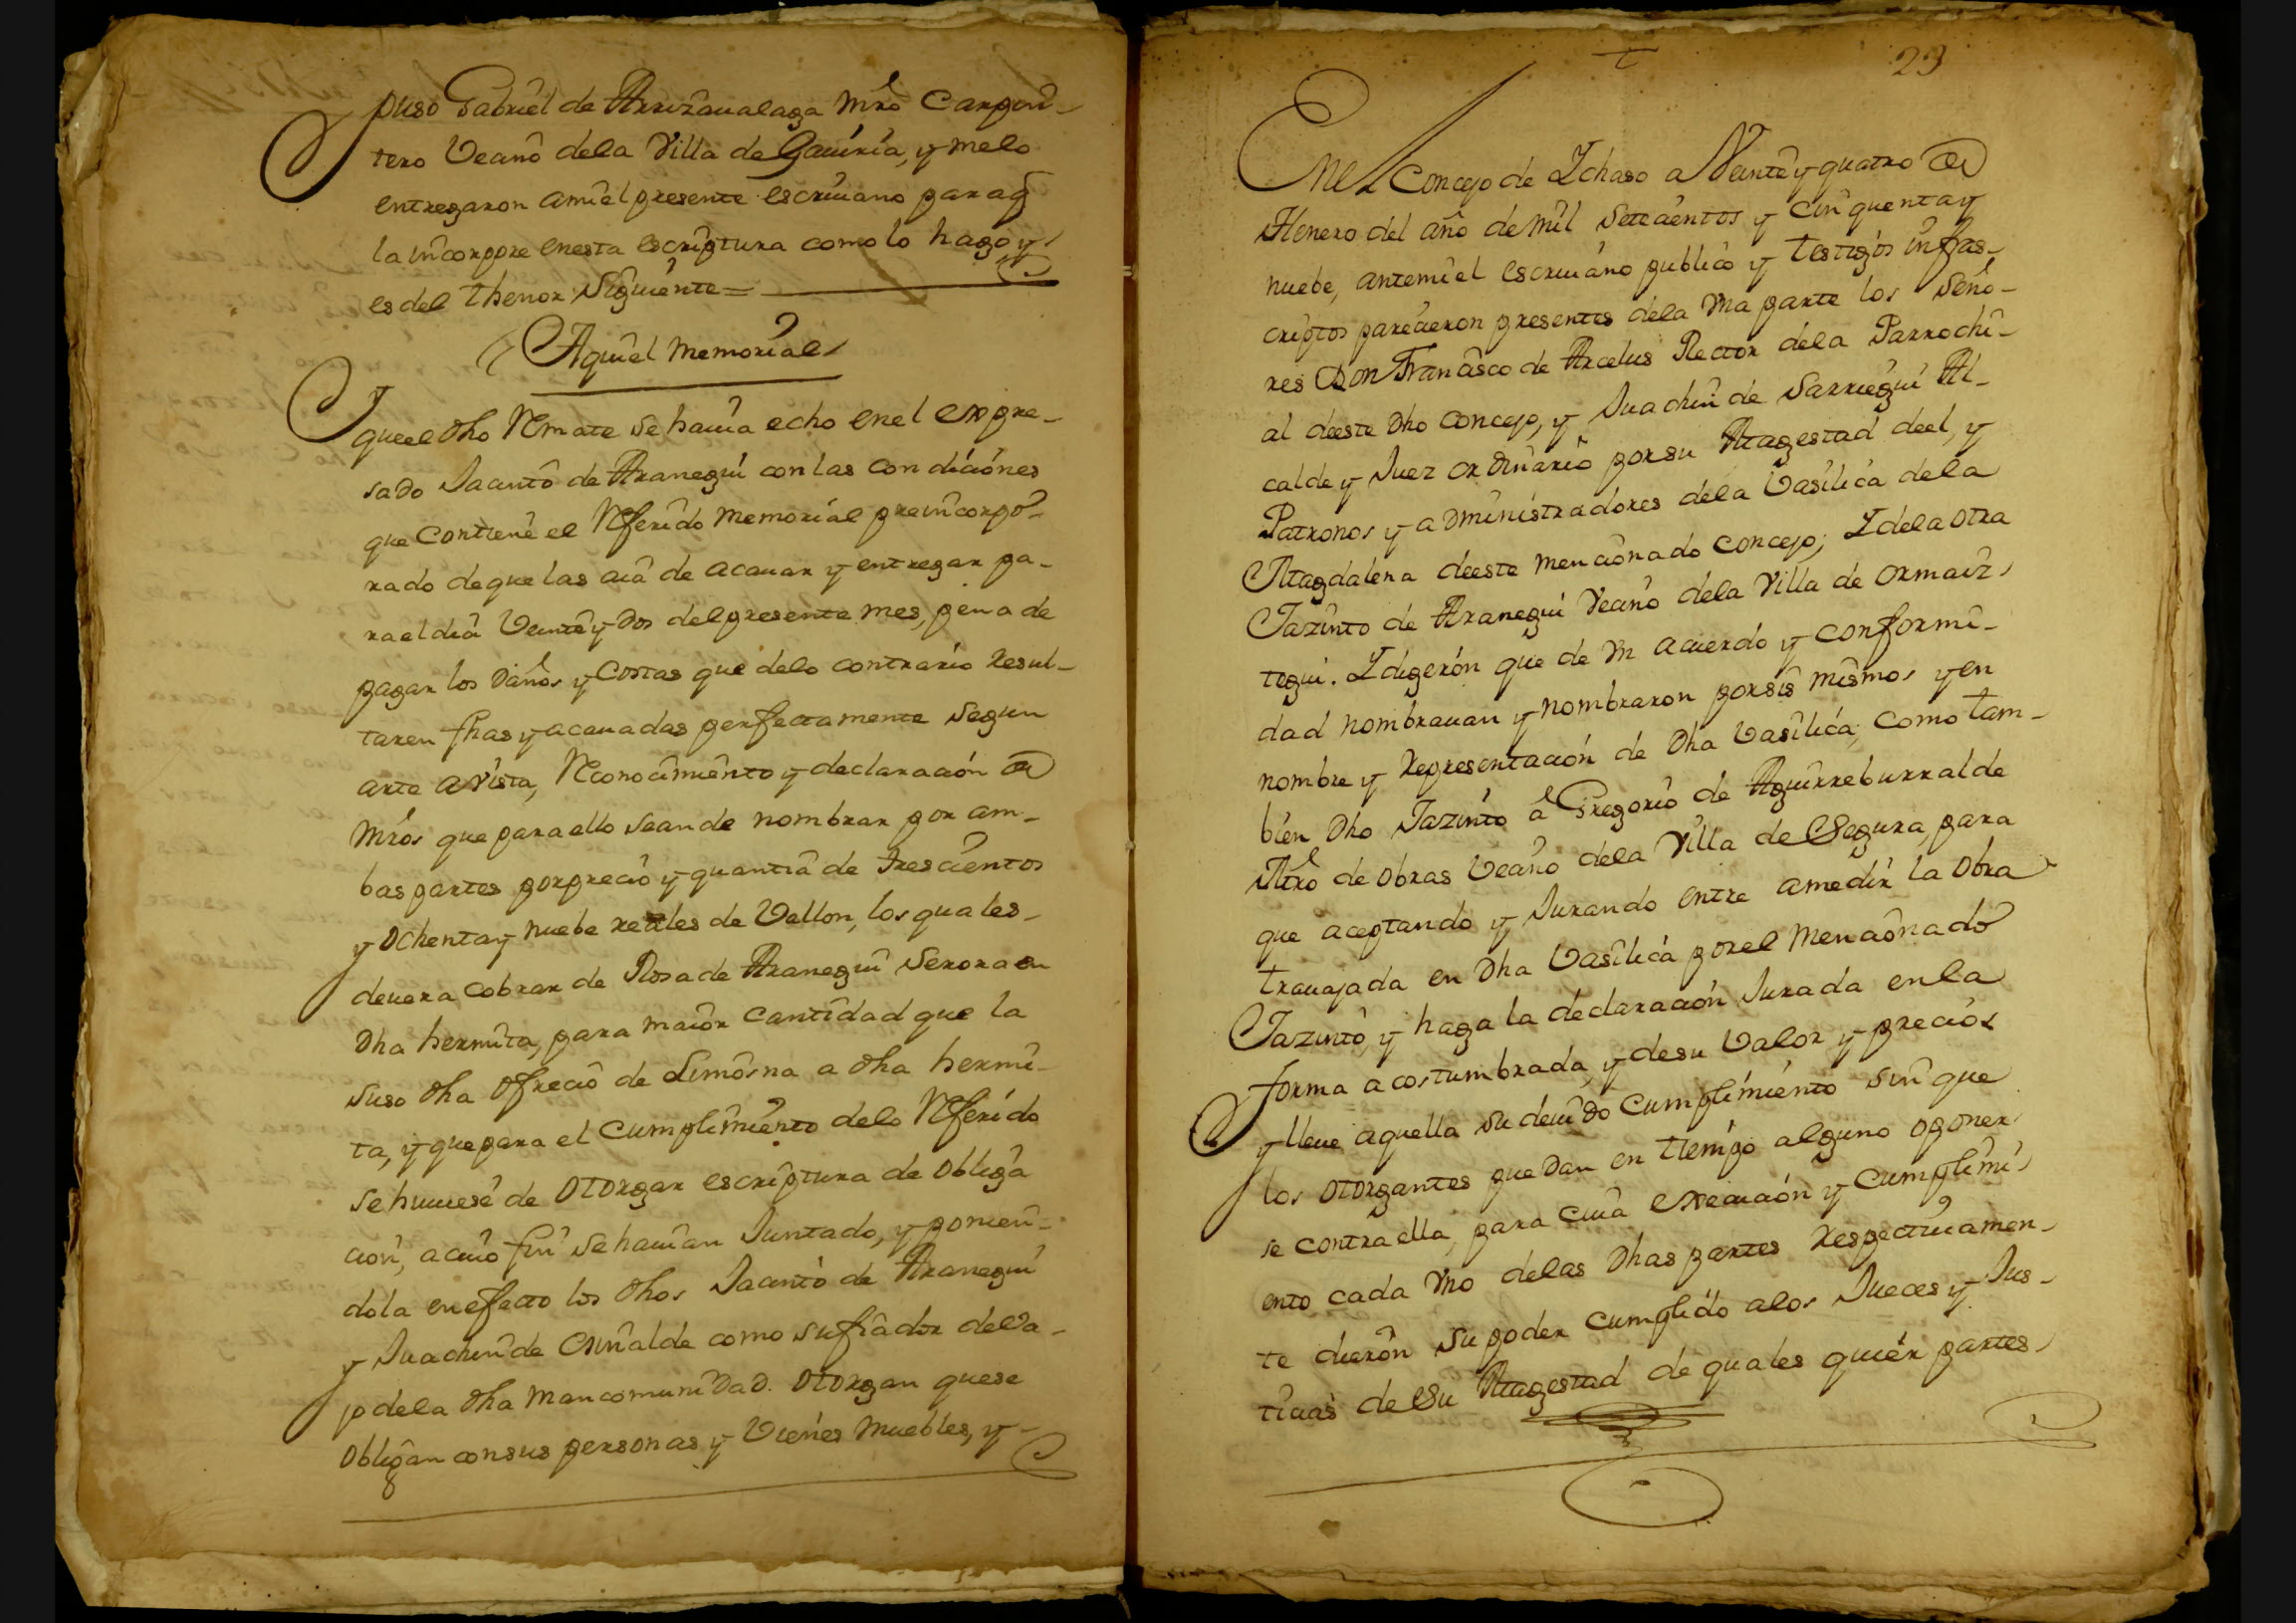 puso Gabriel de Arrizaualaga Mrõ Carpin-
tero Veaño dela Villa de Gauiria, y melo
entregaron amiel presente escriuano paraq̃
la incorpore enesta escriptura como lo hago y
es del thenor Siguiente=
Aquiel Memorial
queel dho Remate se hauia echo enel expre-
sado Jacinto de Aranegui con las condiciones
que contiene el Referido Memorial preincorpo-
rado deque las aia de acauar y entregar pa-
rael dia Veinte y dos del presente mes, pena de
pagar los daños y costas que delo contrario resul-
taren fhas y acauadas perfectamente segun
arte a Vista, Reconocimiento y declaracion de
Mrõs que para ello sean de nombrar por am-
bas partes por precio y quantia de trescientos
y ochenta y nuebe reales de Vellon, los quales
deuera cobrar de Rosa de Aranegui Serora en
dha hermita, para maior cantidad que la
suso dha ofrecio de Limosna a dha hermi-
ta, y que para el cumplimiento delo Referido
se huuiese de otorgar escriptura de obliga
cion, a cuio fin se hauian Juntado, y ponien-
dola en efecto los dhos Jacinto de Aranegui
y Juachin de como su fiador deva-
jo dela dha mancomunidad. Otorgan quese
obligan consus personas y Vienes muebles, y
23
Enel Concejo de Ychaso a Veinte y quatro de
Henero del año de mil setecientos y cinquenta y
nuebe, antemi el escriuano publico y testigos infras-
criptos parecieron presentes dela vna parte los seño-
res Don Francisco de Arcelus Rector dela Parrochi-
al deeste dho concejo, y Juachin de Sarriegui Al-
calde y Juez ordinario por su Magestad deel, y
Patronos y administradores dela Vasilica dela
Magdalena deeste mencionado concejo; Y dela otra
Jazinto de Aranegui Veaño dela Villa de Ormaiz-
tegui. Y digeron que de vn acuerdo y conformi-
dad nombrauan y nombraron porsis mismos y en
nombre y representacion de dha Vasilica; como tam-
bien dho Jazinto â Gregorio de Aguirreburralde
Mrõ de obras Veaño dela Villa de Segura, para
que aceptando y Jurando entre amedir la obra
trauajada en dha Vasilica porel mencionado
Jazinto, y haga la declaracion Jurada enla
forma acostumbrada, y desu Valor y precios
y lleue aquella su deuido cumplimiento sin que
los otorgantes quedan en tiempo alguno oponer
se contra ella, para cuia execucion y cumplimi-
ento cada vno delas dhas partes respectiuamen-
te dieron su poder cumplido alos Jueces y Jus-
ticias de su Magestad de quales quier partes